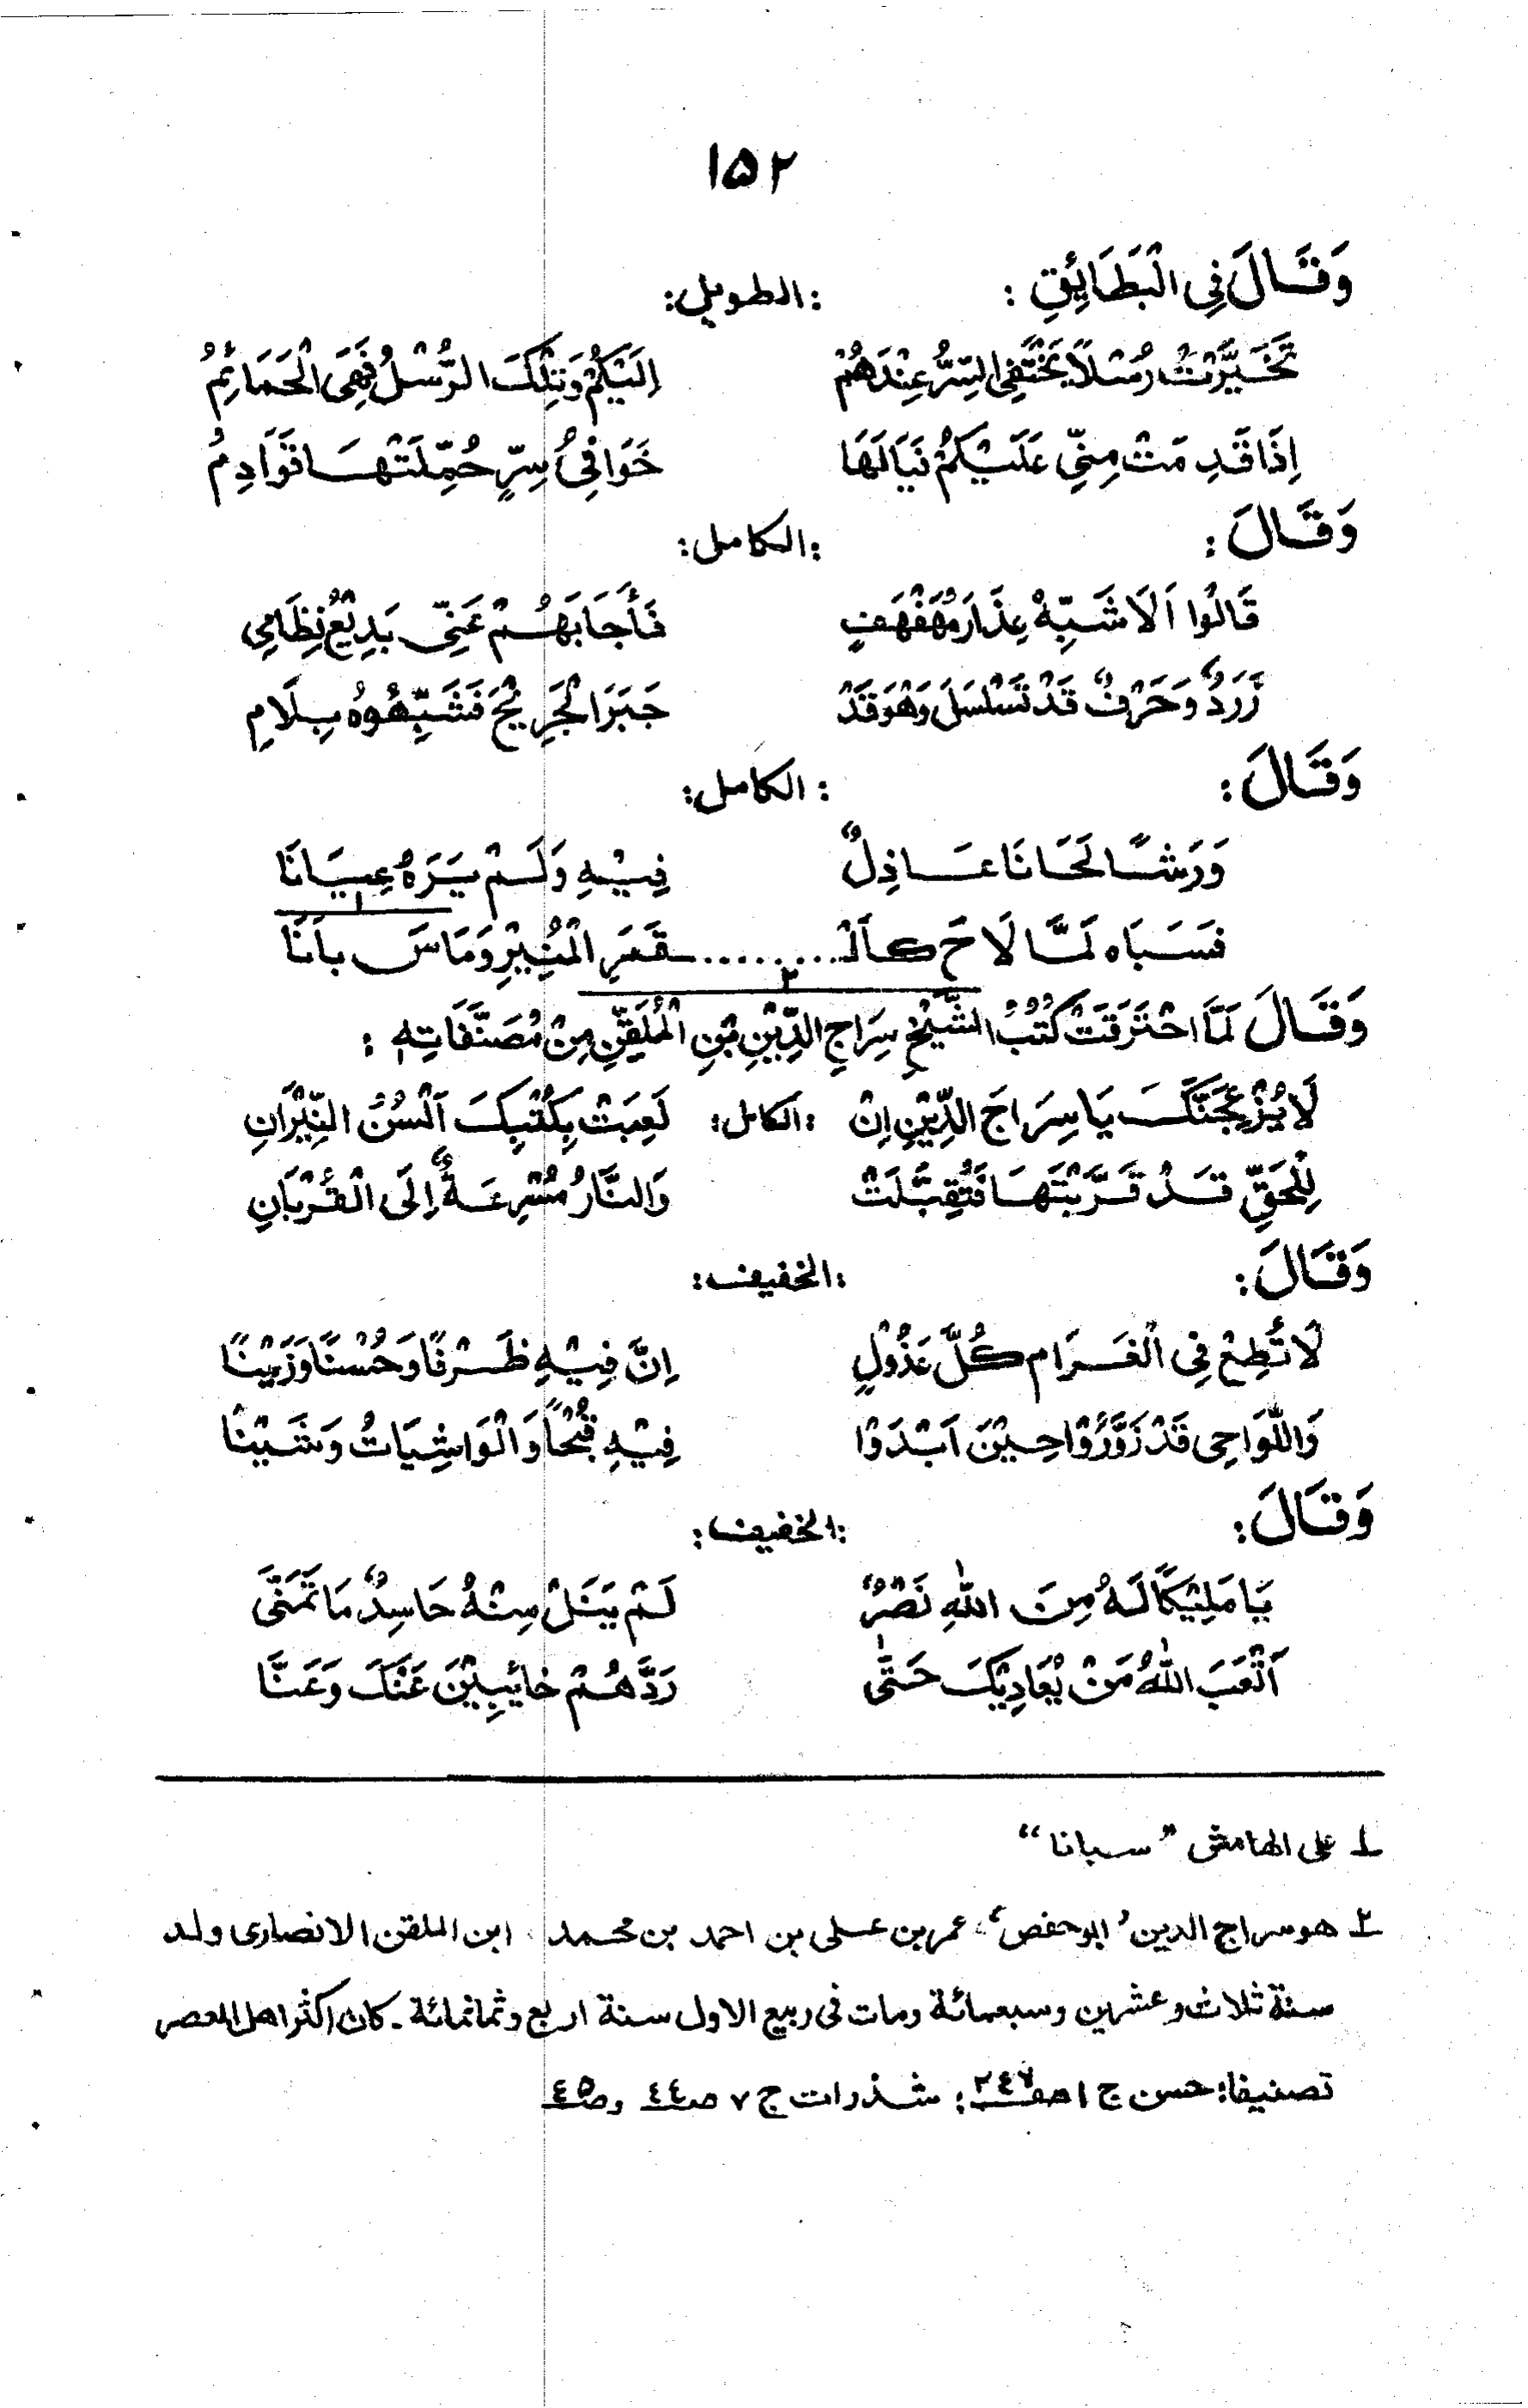 ١٥٢
وَقَالَ فِى الْبَطَائِقِ : :الطويل:
تَخَيَّرْتُ رُسْلاً يَخْتَفِى السِّرُّ عِنْدَهُمْ اِلَيْكُمْ وَتِلْكَ الرُّسْلُ فَهِىَ الْحَمَائِمُ
اِذَا قَدِ مَتْ مِنِّى عَلَيْكُمْ نَيَالَهَا خَوَافِىُ سِرٍّ حُمِّلَتْهَا قَوَادِمُ
وَقَالَ : :الكامل:
قَالُوا اَلَا شَبِّهْ عِذَارَ مُهَفْهَفٍ فَأَجَابَهُمْ عَنِّى بَدِيْعُ نِظَامِى
زَرَدٌ وَحَرْفٌ قَدْ تَسَلْسَلَ وَهْوَ قَدْ جَبَرَ الْجَرِيْحَ فَشَبِّهُوهُ بِلَامِ
وَقَالَ : :الكامل:
وَرَشًا لَحَانَا عَاذِلٌ فِيْهِ وَلَمْ يَرَهُ عِيَانَا
فَسَبَاه لَمَّا لَاحَ كَالْـ.........ـقَمَرِ الْمُنِيْرِ وَمَاسَ بانَا ١
وَقَالَ لَمَّا احْتَرَقَتْ كُتُبُ الشَّيْخِ سِرَاجِ الدِّيْنِ بْنِ الْمُلَقِّنِ ٢ مِنْ مُصَنَّفَاتِهِ :
لَا يُزْعِجَنَّكَ يَا سِرَاجَ الدِّيْنِ اِنْ :الكامل: لَعِبَتْ بِكُتْبِكَ اَلْسُنُ النِّيْرَانِ
لِلْحَقِّ قَدْ قَرَّبْتَهَا فَتُقِبَّلَتْ وَالنَّارُ مُسْرِعَةٌ اِلَى الْقُرْبَانِ
وَقَالَ : :الخفيف:
لَا تُطِعْ فِى الْغَرَامِ كُلَّ عَذُوْلٍ اِنَّ فِيْهِ ظَرْفًا وَحُسْنًا وَزَيْنًا
وَاللَّوَاحِى قَدْ زَوَّرُوْا حِيْنَ اَبْدَوْا فِيْهِ قُبْحًا وَالْوَاشِيَاتُ وَشَيْنًا
وَقَالَ : :الخفيف:
يَا مَلِيْكًا لَهُ مِنَ اللهِ نَصْرٌ لَمْ يَنَلْ مِنْهُ حَاسِدٌ مَا تَمَنَّى
اَتْعَبَ اللهُ مَنْ يُعَادِيْكَ حَتَّى رَدَّهُمْ خائِبِيْنَ عَنْكَ وَعَنَّا
١ على الهامش "سبانا"
٢ هو سراج الدين 'ابو حفص' عمر بن على بن احمد بن محمد ابن الملقن الانصارى ولد
سنة ثلاث وعشرين وسبعمائة ومات فى ربيع الاول سنة اربع وثمانمائة۔ كان اكثر اهل العصر
تصنيفا: حسن ج ١ صفـ ٢٤٧: شذرات ج ٧ صـ ٤٤ وصـ ٤٥